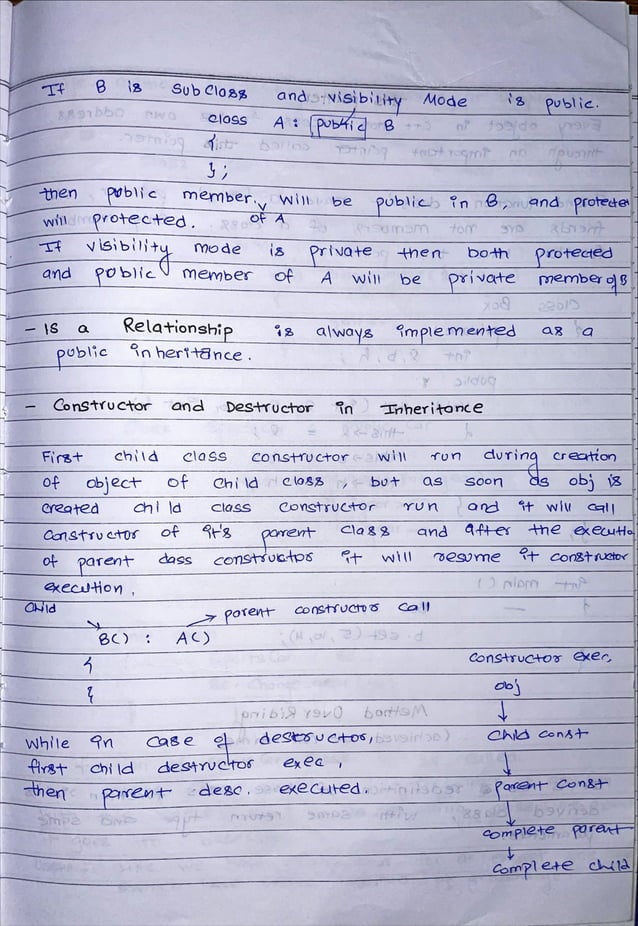 If B is SubClass and visibility Mode is public.
class A : public B
{
};
then public member of A will be public in B, and protected
will protected.
If visibility mode is private then both protected
and public member of A will be private member of B
- IS a Relationship is always implemented as a
public inheritance.
- Constructor and Destructor in Inheritance
First child class constructor will run during creation
of object of child class, but as soon as obj is
created child class constructor run and it will call
constructor of it's parent class and after the execution
of parent class constructor it will resume it constructor
execution.
Child
→ parent constructor call
B() : A()
{
}
constructor exec,
obj
↓
child const
↓
parent const
↓
complete parent
↓
complete child
While in case of destructor,
first child destructor exec,
then parent desc. executed.